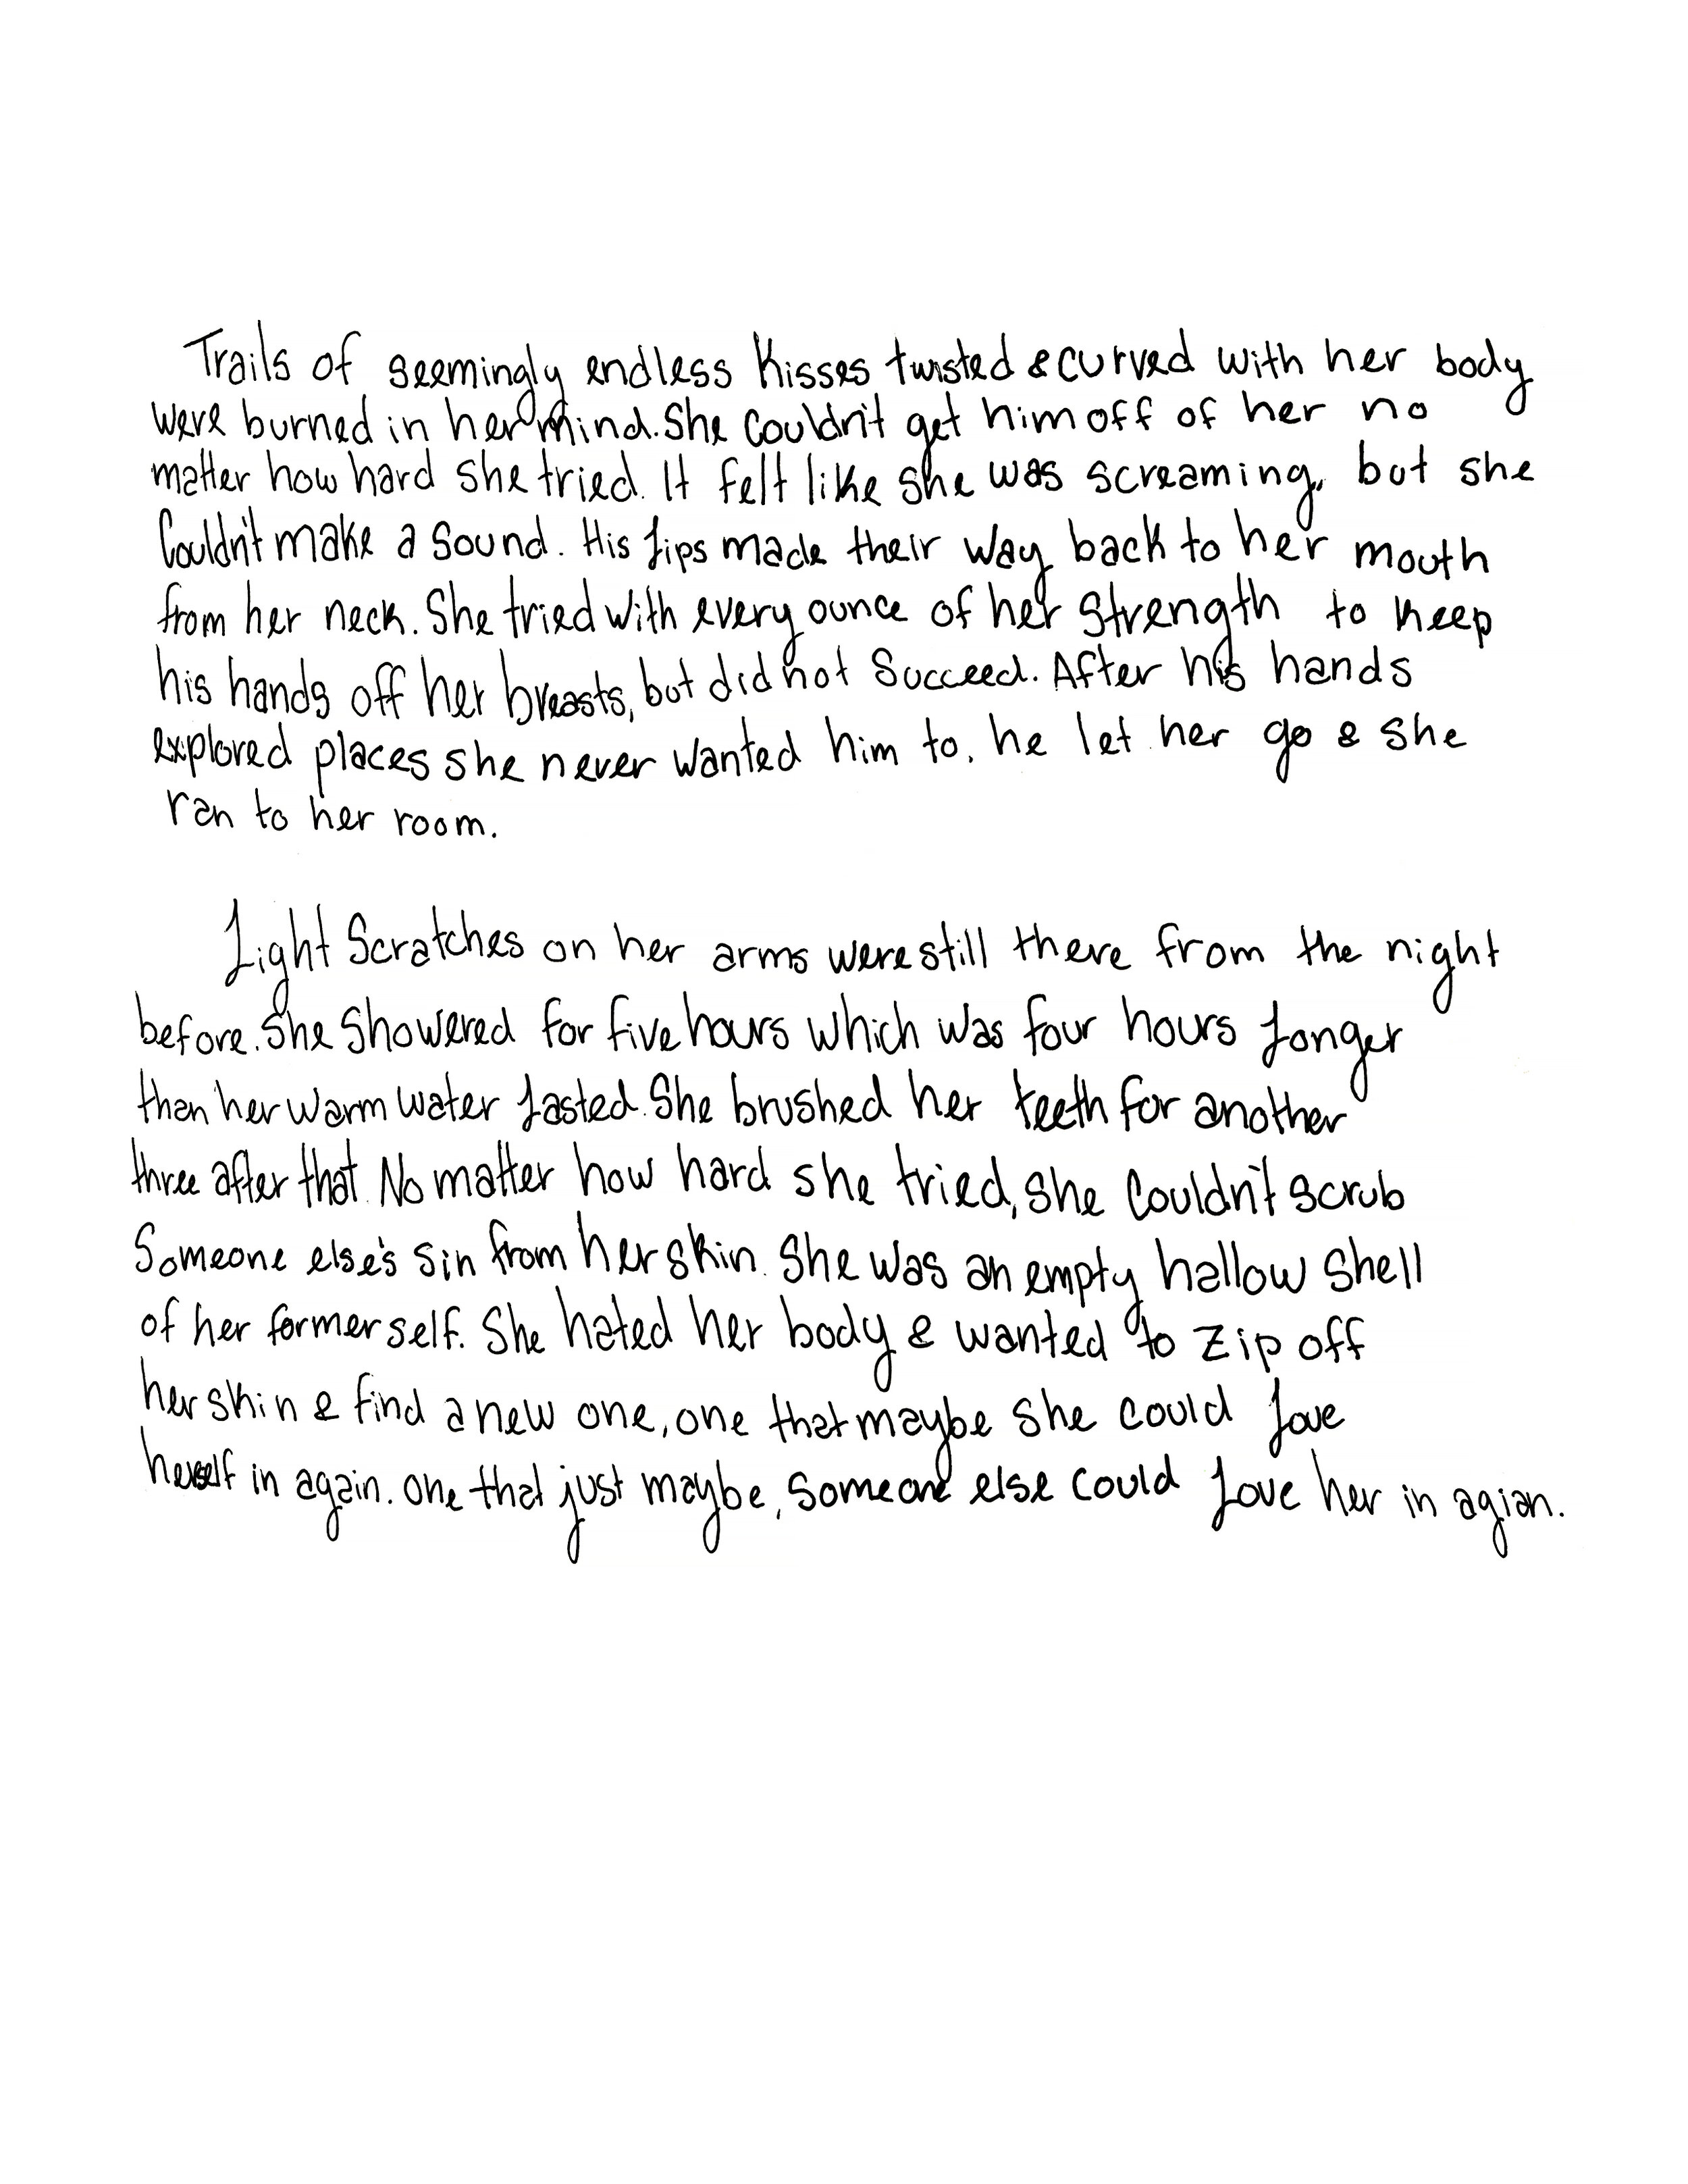 Trails of seemingly endless kisses twisted & curved with her body
were burned in her mind. She couldn't get him off of her no
matter how hard she tried. It felt like she was screaming, but she
couldn't make a sound. His lips made their way back to her mouth
from her neck. She tried with every ounce of her strength to keep
his hands off her breasts, but did not succeed. After his hands
explored places she never wanted him to, he let her go & she
ran to her room.
Light scratches on her arms were still there from the night
before. She showered for five hours which was four hours longer
than her warm water lasted. She brushed her teeth for another
three after that. No matter how hard she tried, she couldn't scrub
someone else's sin from her skin. She was an empty hallow shell
of her former self. She hated her body & wanted to zip off
her skin & find a new one, one that maybe she could love
herself in again. One that just maybe, someone else could love her in agian.